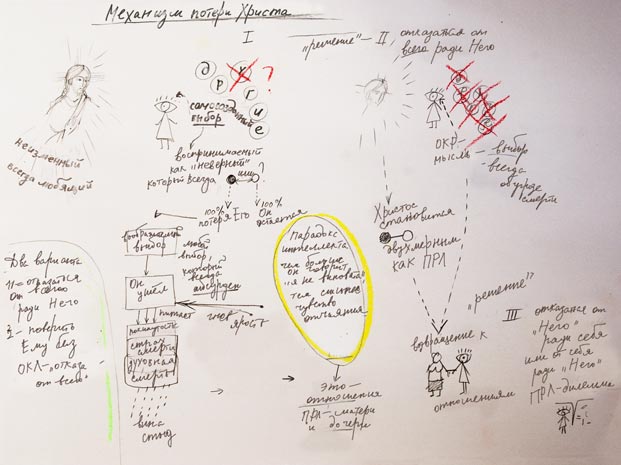 Механизм потери Христа
I
"решение" – II, отказаться от
всего ради Него
д р у г и е
?
самосозданный
выбор
неизменный
всегда любящий
воспринимаемый
как "неверный"
который всегда
или
?
100%
потеря Его
100%
Он
остается
ОКР-
мысль – выбор
всегда
смерти
Христос
становится
двухмерным
как ПРЛ
выбор
любой
выбор,
который
всегда
абсурден
Парадокс
интеллекта
чем больше
он говорит
"я не виноват"
тем сильнее
чувство
отчаяния
Он
ушел
питает
гнев
ярость
страх
смерти
духовная
смерть
вина
стыд
Два варианта
1 – отказаться
от всего
ради Него
2 – поверить
Ему без
ОКЛ – "отказа
от всего"
Это –
отношения
ПРЛ – матери
и дочери
"решение"
III
отказаться от
"Него"
ради себя
или от себя
ради "Него"
ПРЛ-дилемма
возвращение к
отношениям